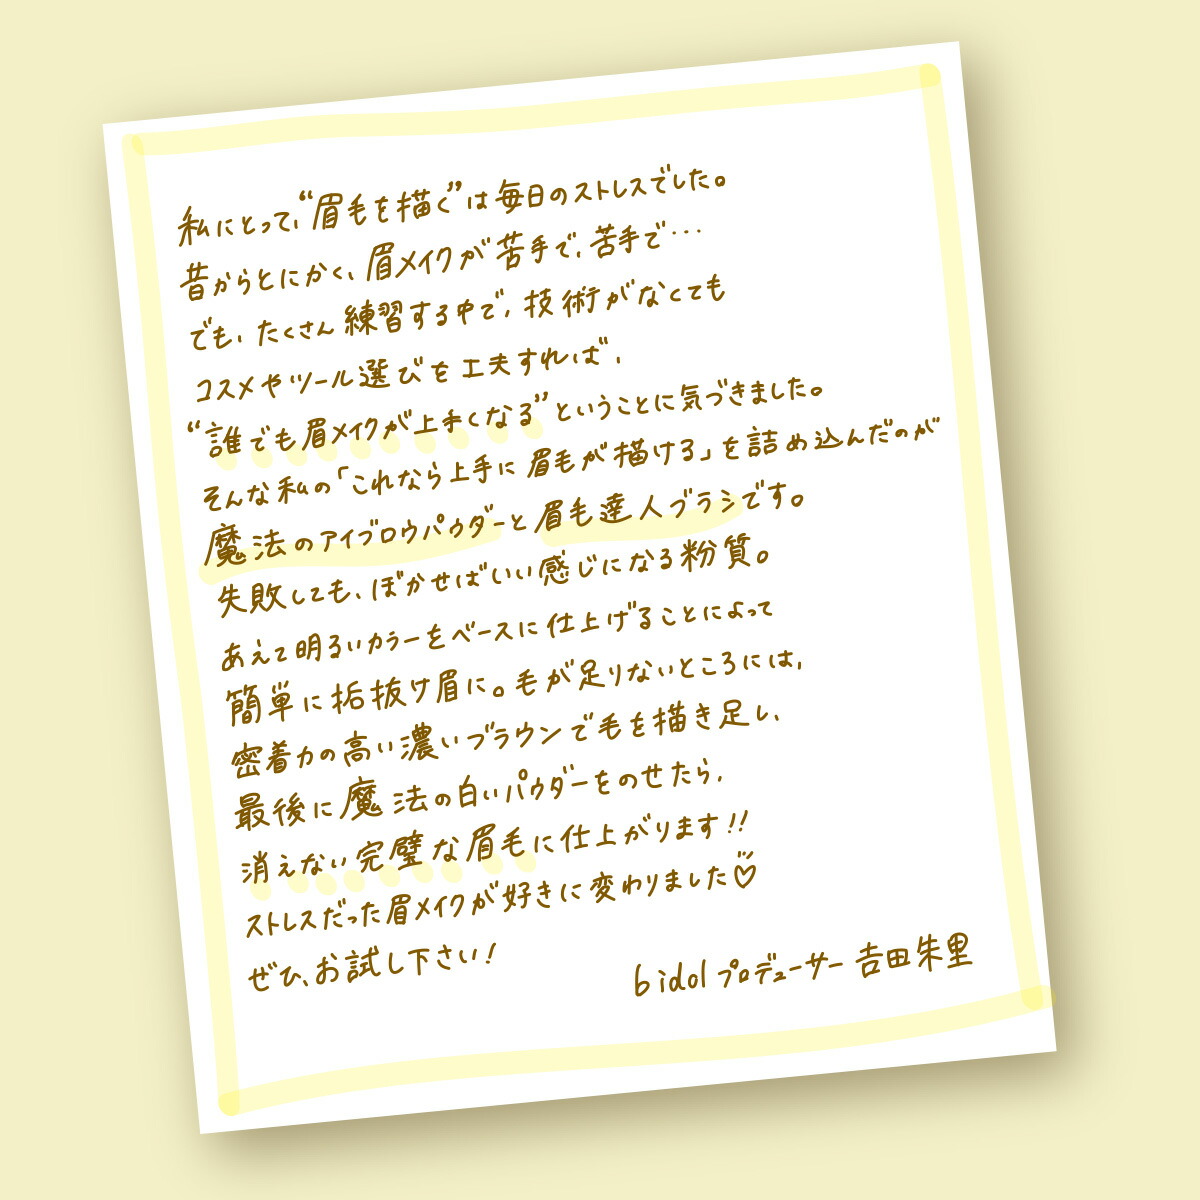 私にとって、“眉毛を描く”は毎日のストレスでした。
昔からとにかく、眉メイクが苦手で、苦手で…
でも、たくさん練習する中で、技術がなくても
コスメやツール選びを工夫すれば、
“誰でも眉メイクが上手くなる”ということに気づきました。
そんな私の「これなら上手に眉毛が描ける」を詰め込んだのが
魔法のアイブロウパウダーと眉毛達人ブラシです。
失敗しても、ぼかせばいい感じになる粉質。
あえて明るいカラーをベースに仕上げることによって
簡単に垢抜け眉に。毛が足りないところには、
密着力の高い濃いブラウンで毛を描き足し、
最後に魔法の白いパウダーをのせたら、
消えない完璧な眉毛に仕上がります!!
ストレスだった眉メイクが好きに変わりました♡
ぜひ、お試し下さい!
b idol プロデューサー 吉田朱里